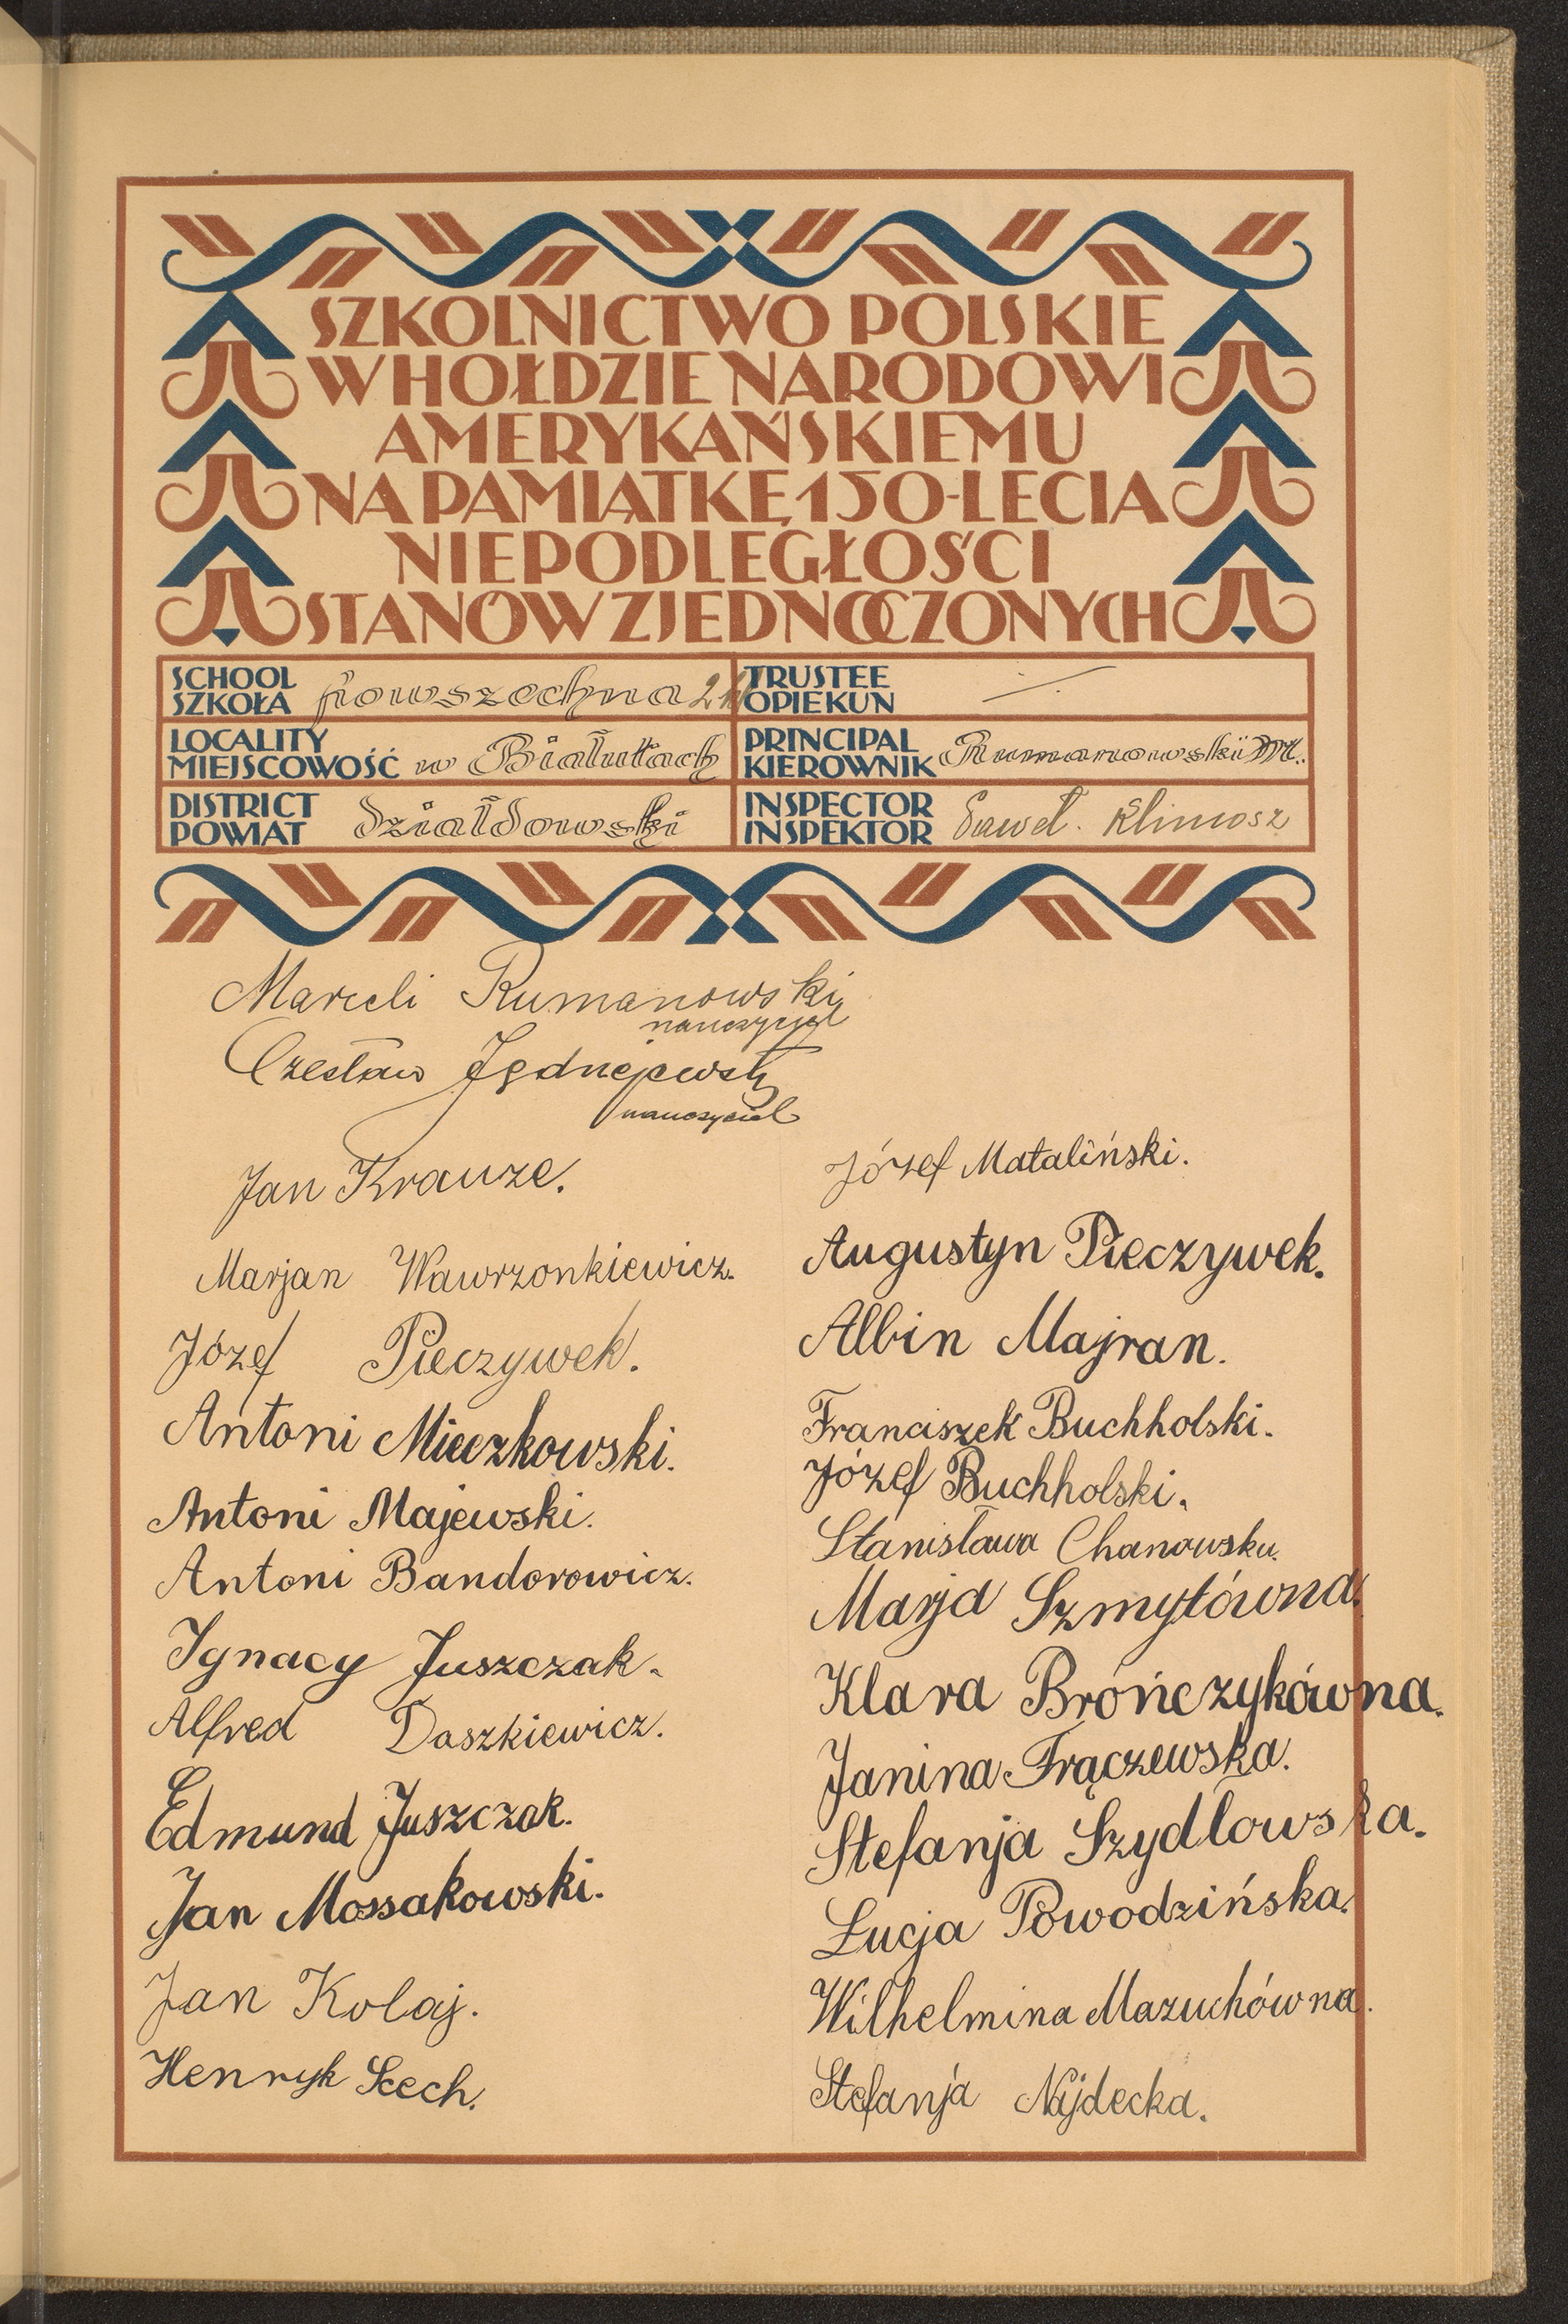 SZKOLNICTWO POLSKIE
W HOŁDZIE NARODOWI
AMERYKAŃSKIEMU
NA PAMIĄTKĘ 150-LECIA
NIEPODLEGŁOŚCI
STANÓW ZJEDNOCZONYCH
SCHOOL
SZKOŁA powszechna 2 kl
TRUSTEE
OPIEKUN
LOCALITY
MIEJSCOWOŚĆ w Białutach
PRINCIPAL
KIEROWNIK Rumanowski M.
DISTRICT
POWIAT działdowski
INSPECTOR
INSPEKTOR Paweł Klimosz
Marceli Rumanowski
nauczyciel
Czesław
nauczyciel
Jan Krauze.
Marjan Wawrzonkiewicz.
Józef Pieczywek.
Antoni Mieczkowski.
Antoni Majewski.
Antoni Bandorowicz.
Ignacy Juszczak.
Alfred Daszkiewicz.
Edmund Juszczak.
Jan Mossakowski.
Jan Kolaj.
Henryk Szech.
Józef Mataliński.
Augustyn Pieczywek.
Albin Majran.
Franciszek Buchholski.
Józef Buchholski.
Stanisława Chanowska.
Marja Szmytówna.
Klara Brończykówna.
Janina Frączewska.
Stefanja Szydlowska.
Łucja Powodzińska.
Wilhelmina Mazuchówna.
Stefanja Najdecka.